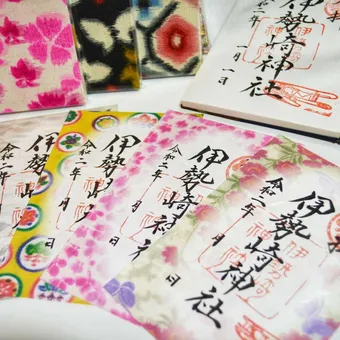 伊勢崎神社
令和二年 一月一日
伊勢崎神社
令和二年 月 日
伊勢崎神社
令和二年 月 日
伊勢崎
令和二年 月 日
伊勢崎
令和二年 月 日